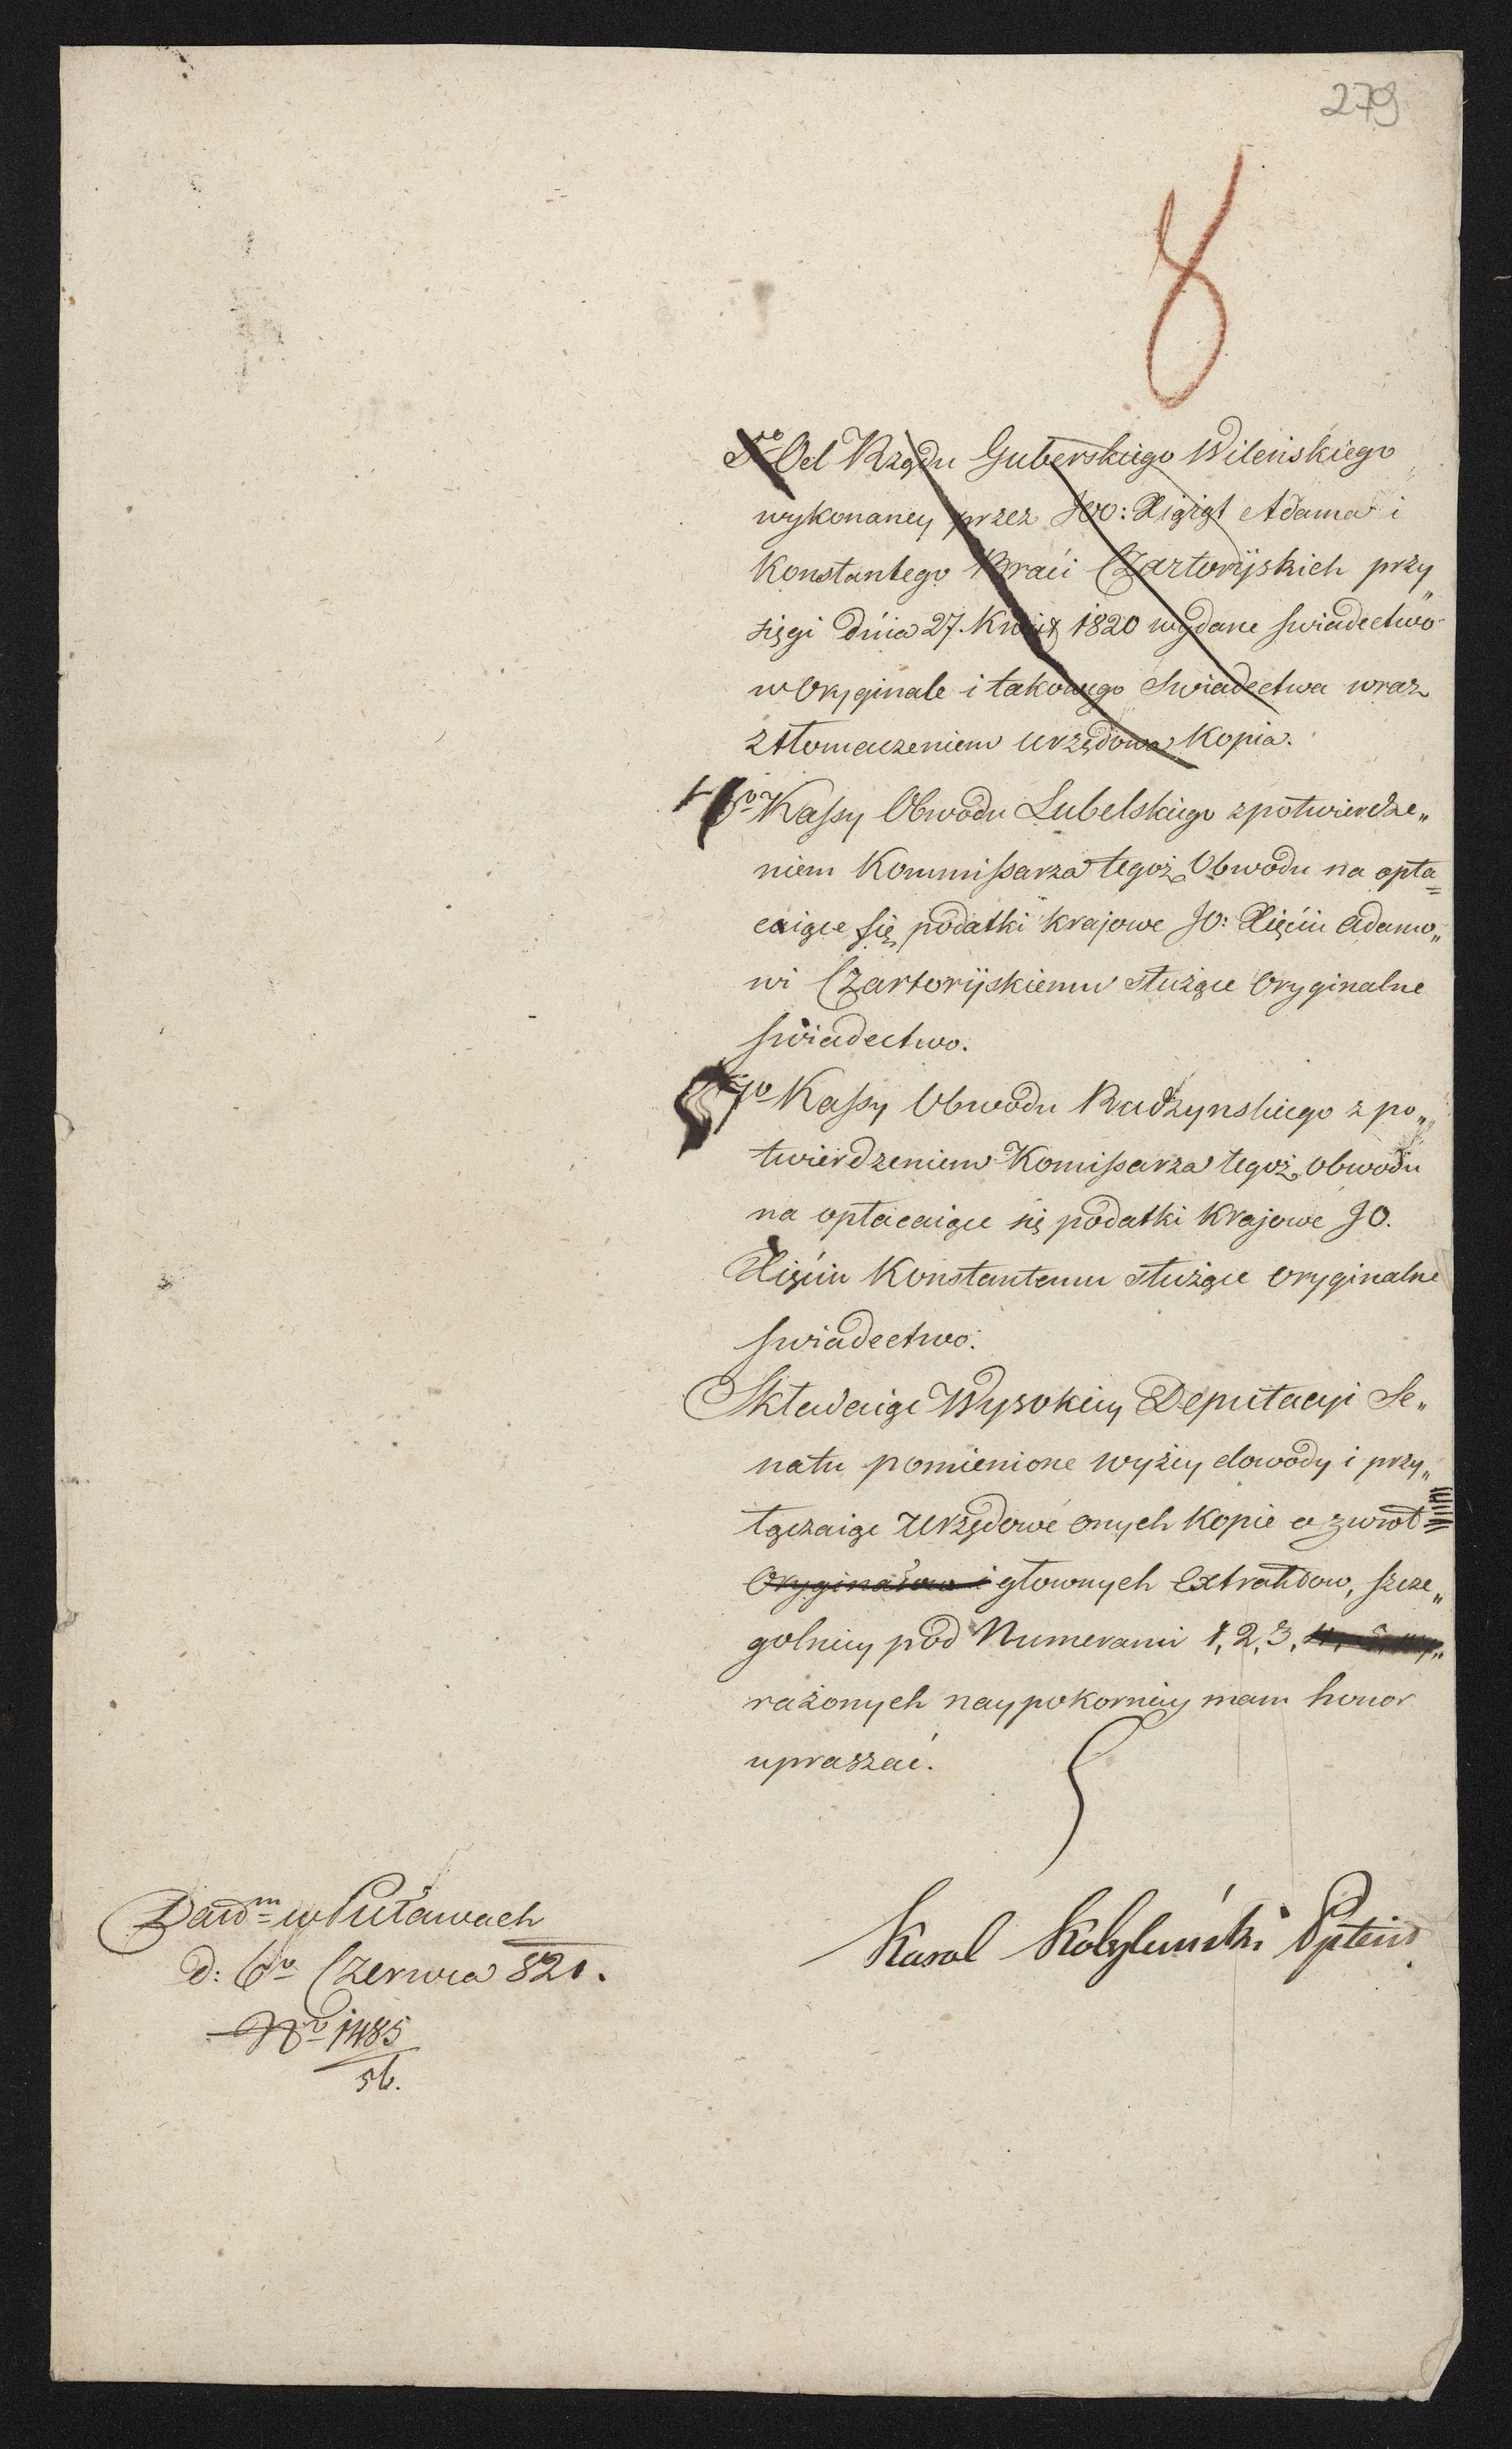 279
8
5to Od Rządu Guberskiego Wileńskiego
wykonaney przez JOO: Xiążąt Adama i
Konstantego Braci Czartoryiskich przy„
sięgi dnia 27. Kwiet 1820 wydane swiadectwo
w Oryginale i takowego Swiadectwa wraz
z tłomaczeniem urzędowa Kopia.
6to Kassy Obwodu Lubelskiego z potwierdze„
niem Kommissarza tegoż Obwodu na opła=
caiące się podatki krajowe JO: Xięciu Adamo„
wi Czartoryiskiemu służące Oryginalne
swiadectwo.
7o Kassy Obwodu Radzynskiego z po„
twierdzeniem Komissarza tegoż Obwodu
na opłacaiące się podatki Krajowe JO.
Xięciu Konstantemu służące oryginalne
swiadectwo.
Składaiąc Wysokiey Deputacyi Se„
natu pomienione wyżey dowody i przy„
łączaiąc Urzędowe onych Kopie o zwrot
Oryginałow i głownych Extraktow, szcze„
golniey pod Numerami 1, 2, 3,
rażonych naypokorniey mam honor
upraszać.
Karol Kobyleński Pptent
Datm w Puławach
d: 6o Czerwca 821.
No 1485
56.